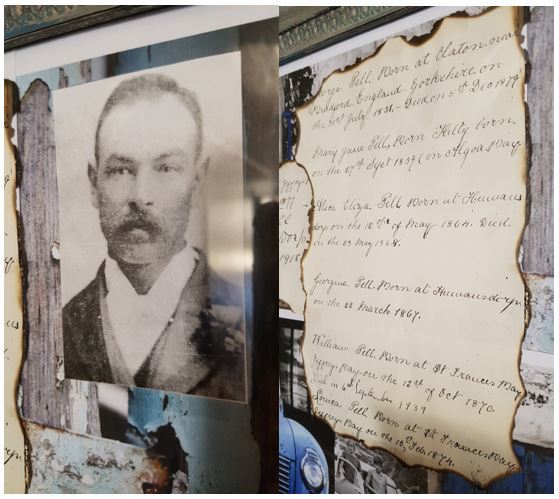 George Pell. Born at Claton near
Bradford England. Yorkshire on
the 31st July 1831 - Died on 5th Dec 1879
Mary Jane Pell, Born Kelly born
on the 27th Sept 1839 (on Algoa Bay
Alice Eliza Pell Born at Humans
dorp on the 12th of May 1864. Died
on the 23 May 1864.
Georgina Pell. Born at Humansdorp
on the 22 March 1867.
William Pell. Born at St Frances Bay
Jeffreys Bay on the 12th of Oct 1870.
Died on 6th September 1939
Louisa Pell Born at St Frances Bay
Jeffreys Bay on the 10, Feb 1874.
1918